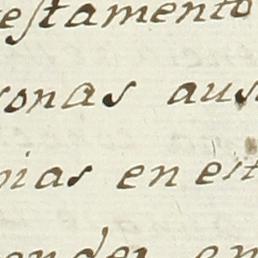 testamento
sonas aus
nias en est
ender en